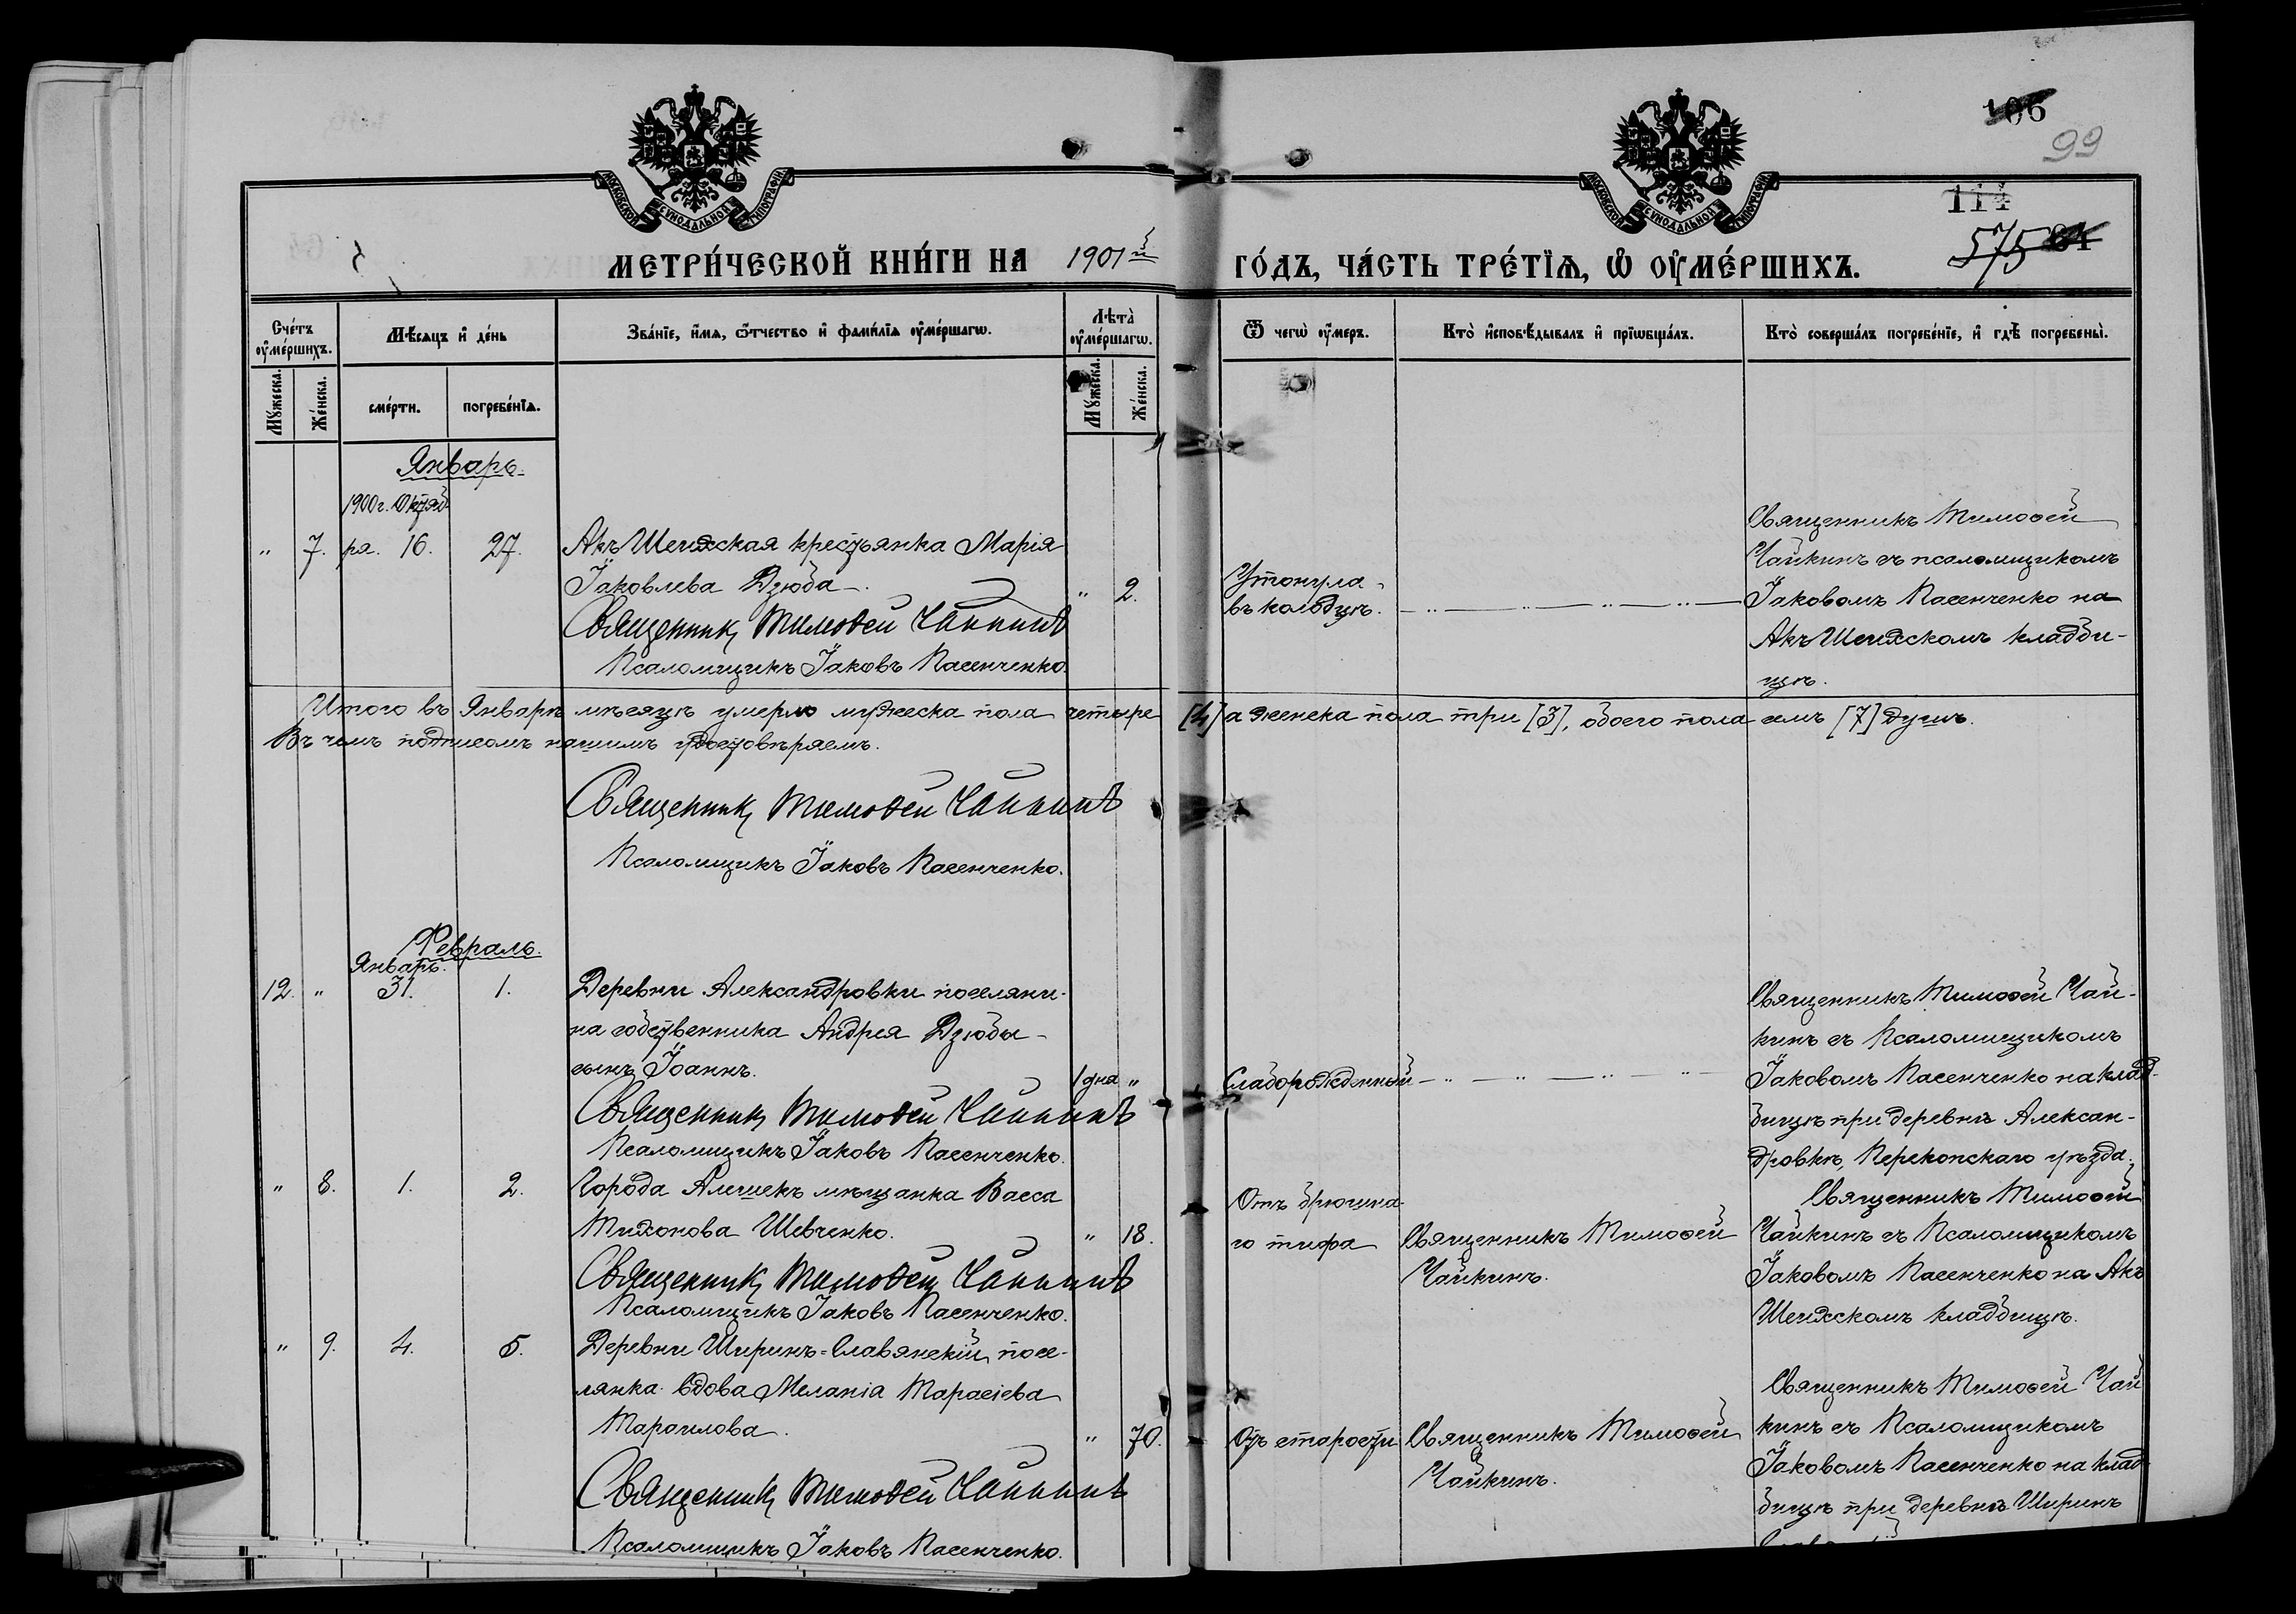 106
99
114
575 64
МОСКОВСКОЙ СѴНОДАЛЬНОЙ ТИПОГРАФІИ
МОСКОВСКОЙ СѴНОДАЛЬНОЙ ТИПОГРАФІИ
МЕТРИ́ЧЕСКОЙ КНИ́ГИ НА 1901й ГО́ДЪ, ЧА́СТЬ ТРЕ́ТЇѦ, Ѽ ОУ҆МЕ́РШИХЪ.
Сче́тъ оу҆ме́ршихъ.
Мѣ́сѧцъ и҆ де́нь
Зва́нїе, и҆́мѧ, ѻ҆́тчество и҆ фами́лїѧ оу҆ме́ршагѡ.
Лѣта̀ оу҆ме́ршагѡ.
Ѿ чегѡ̀ оу҆́меръ.
Кто̀ и҆сповѣ́дывалъ и҆ прїѡбща́лъ.
Кто̀ соверша́лъ погребе́нїе, и҆ гдѣ̀ погребены̀.
Мꙋ́жеска.
Же́нска.
сме́рти.
погребе́нїѧ.
Мꙋ́жеска.
Же́нска.
Январь.
1900 г. Октяб
" 7. ря. 16. 27. Акъ Шеихская крестьянка Марія
Іаковлева Дзюба " 2.
Священникъ Тимоѳей Чайкинъ
Псаломщикъ Іаковъ Пасенченко.
Утонула
въ колодцѣ.
Священникъ Тимоѳей
Чайкинъ съ псаломщикомъ
Іаковомъ Пасенченко на
Акъ Шеихскомъ кладби-
щѣ.
Итого въ Январѣ мѣсяцѣ умерло мужеска пола четыре [4] а женска пола три [3], обоего пола семь [7] душъ.
Въ чемъ подписомъ нашимъ удостовѣряемъ.
Священникъ Тимоѳей Чайкинъ
Псаломщикъ Іаковъ Пасенченко.
Февраль.
Январь.
12. " 31. 1. Деревни Александровки поселяни-
на собственника Андрея Дзюбы
сынъ Іоаннъ. 1 дня "
Священникъ Тимоѳей Чайкинъ
Псаломщикъ Іаковъ Пасенченко.
Слаборожденный
Священникъ Тимоѳей Чай-
кинъ съ Псаломщикомъ
Іаковомъ Пасенченко на клад-
бищѣ при деревнѣ Алексан-
дровкѣ, Перекопскаго уѣзда.
" 8. 1. 2. Города Алешекъ мѣщанка Васса
Тихонова Шевченко. " 18.
Священникъ Тимоѳей Чайкинъ
Псаломщикъ Іаковъ Пасенченко.
Отъ брюшна
го тифа
Священникъ Тимоѳей
Чайкинъ.
Священникъ Тимоѳей
Чайкинъ съ Псаломщикомъ
Іаковомъ Пасенченко на Акъ
Шеихскомъ кладбищѣ.
" 9. 4. 5. Деревни Ширинъ-Славянскій посе-
лянка вдова Меланія Тарасіева
" 70.
Священникъ Тимоѳей Чайкинъ
Псаломщикъ Іаковъ Пасенченко.
Отъ старости
Священникъ Тимоѳей
Чайкинъ.
Священникъ Тимоѳей Чай
кинъ съ Псаломщикомъ
Іаковомъ Пасенченко на клад
бищѣ при деревнѣ Ширинъ